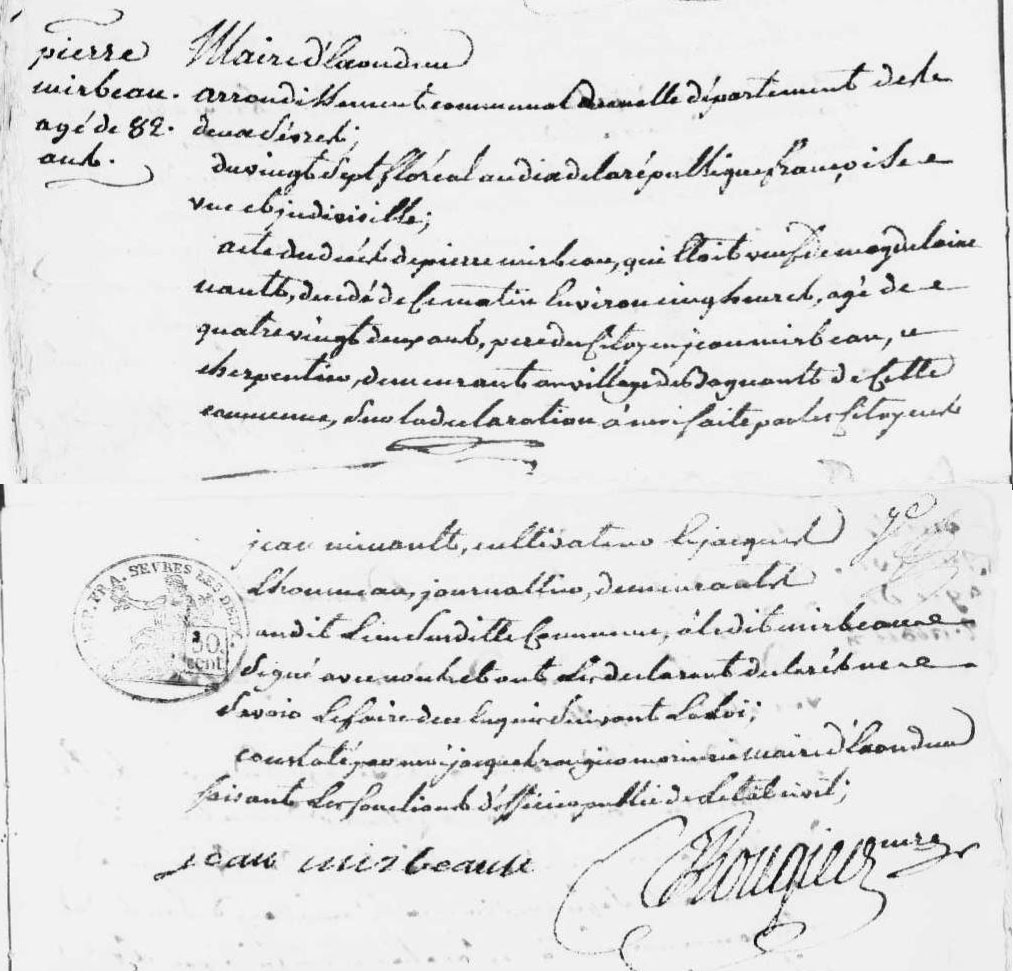 pierre
mirbeau.
agé de 82.
ans.
Mairie d'
arrondissement communal de melle département des
deux Sévres;
du vingt Sept floréal an dix de la république françoise
une et jndivisible;
acte du décés de pierre mirbeau, qui étoit veuf de magdelaine
nault, décédé de Ce matin Environ cinq heures, agé de
quatre vingt deux ans, pere du Citoyen jean mirbeau,
cherpentier, demeurant au village des de Cette
commune, Sur la declaration à moi faite par les Citoyens
jean minault, cultivateur Et jacques
Lhoumeau, journallier, demeurants
audit Lieu Susditte Commune, & ledit mirbeau
Signé avec nous et ont Les declarants declaré ne
Savoir Le faire de ce Enquis Suivant La Loi;
constaté par moi jacques rougier maire d'
faisant Les fonctions d'officier public de Letat civil;
jean mirbeaux
Rougier mre
REP. FRA. SEVRES LES DEUX.
50
cent.